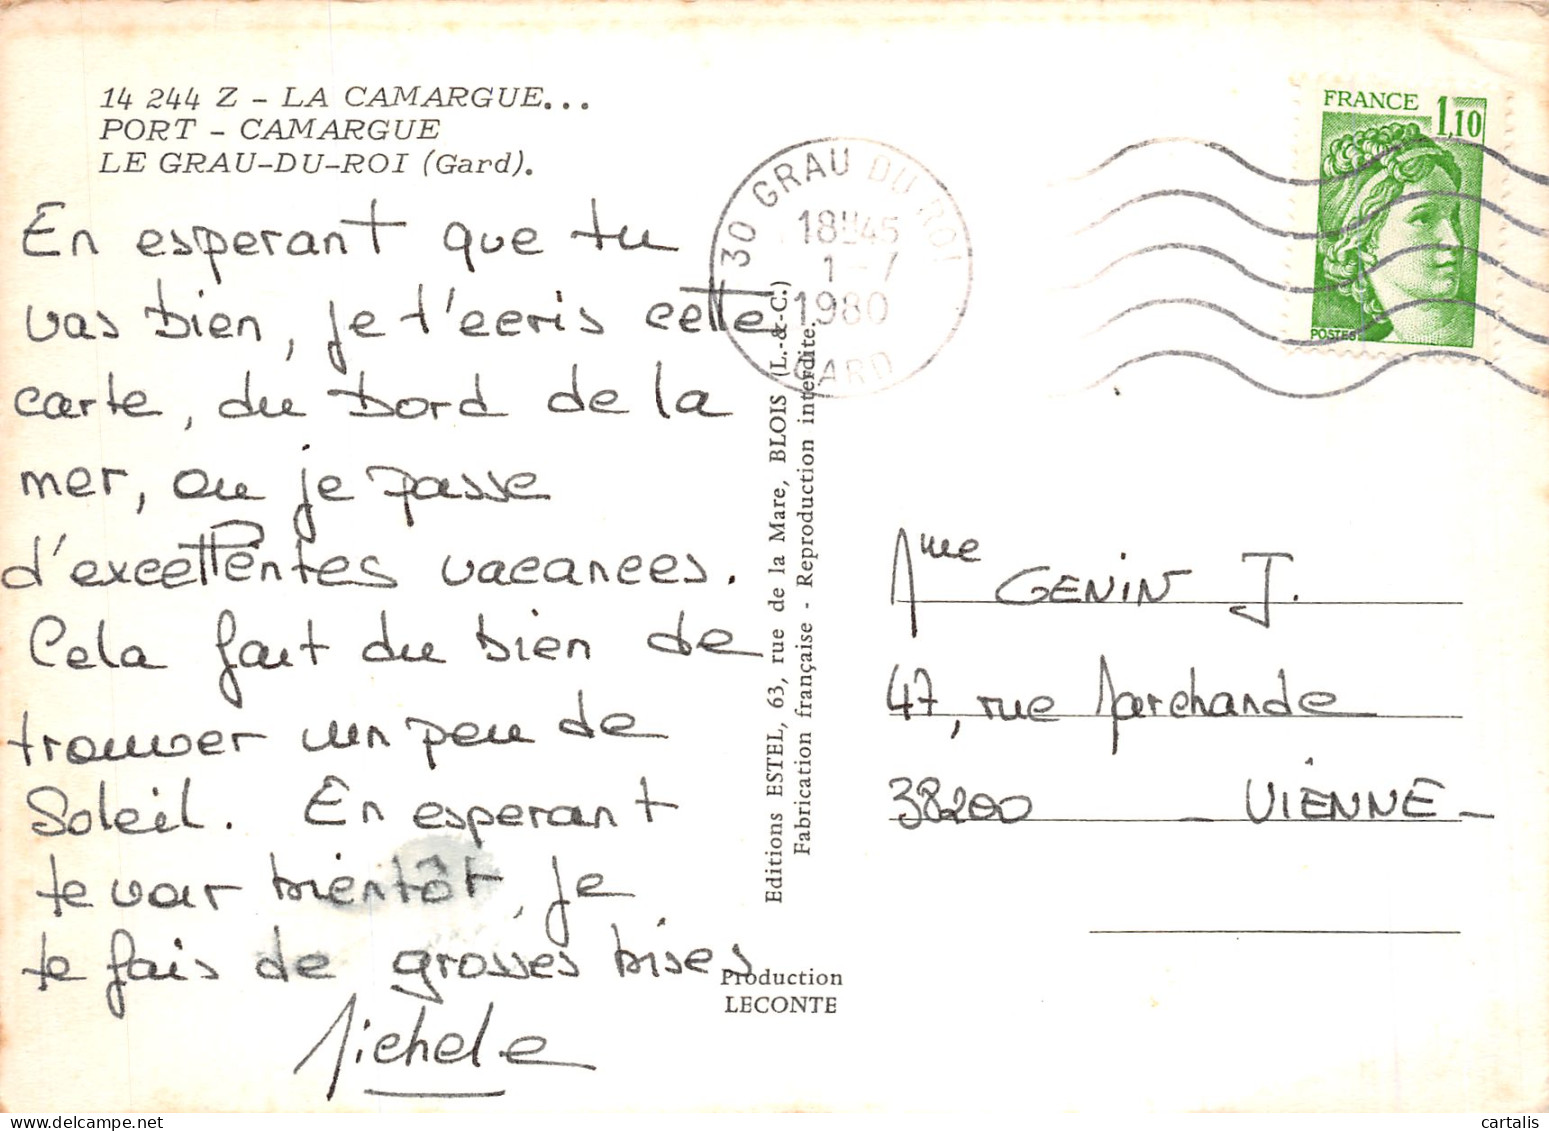 14 244 Z - LA CAMARGUE...
PORT - CAMARGUE
LE GRAU-DU-ROI (Gard).
En esperant que tu
vas bien, je t'ecris cette
carte, du bord de la
mer, ou je passe
d'excellentes vacances.
Cela fait du bien de
trouver un peu de
Soleil. En esperant
te voir bientôt, je
te fais de grosses bises
Michele
Editions ESTEL, 63, rue de la Mare, BLOIS (L.-&-C.)
Fabrication française - Reproduction interdite.
Production
LECONTE
30 GRAU DU ROI
18H45
1-7
1980
GARD
FRANCE 1,10
POSTES
Mme GENIN J.
47, rue Marchande
38200 - VIENNE -
cartalis